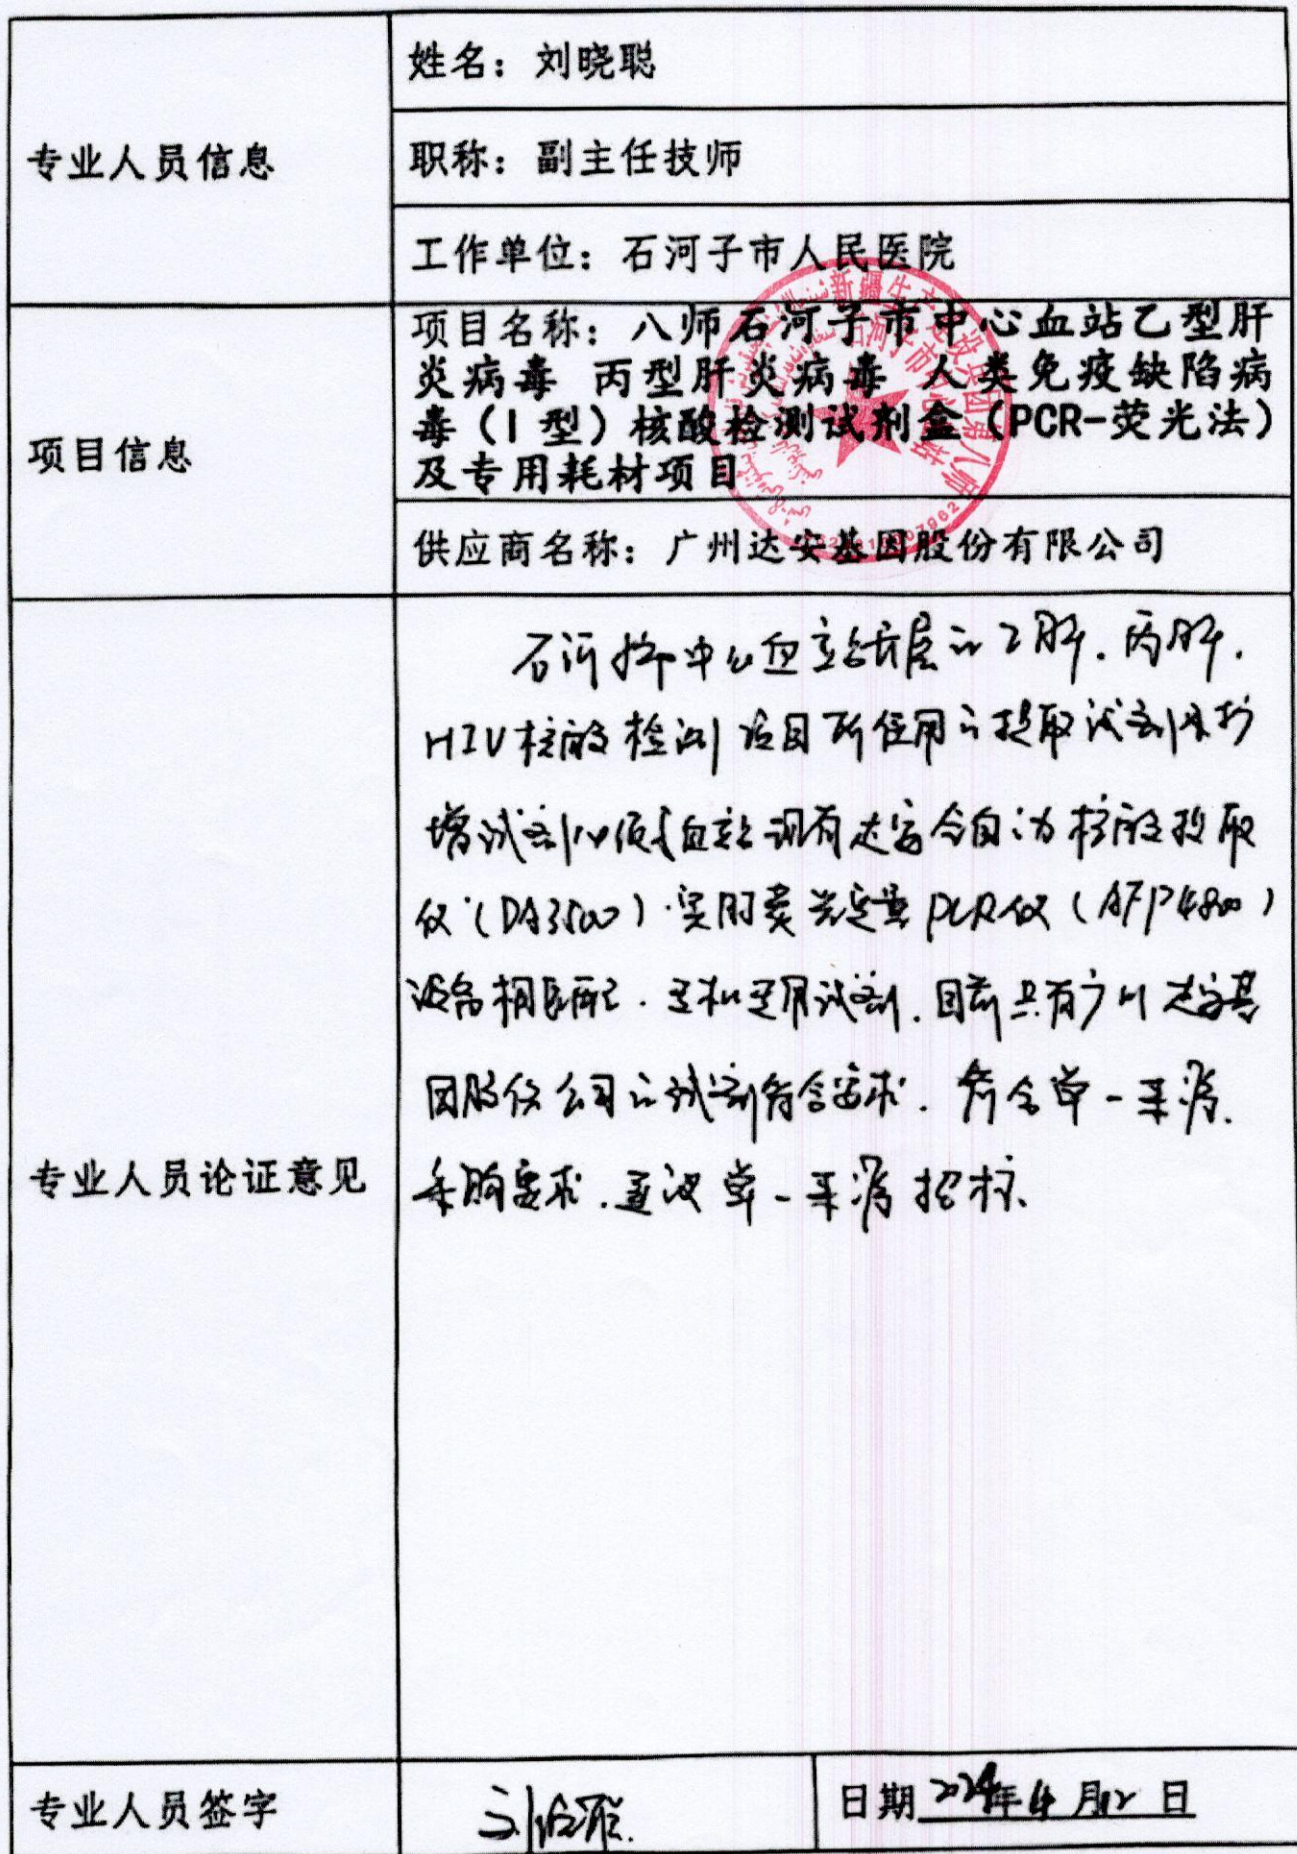 专业人员信息
姓名：刘晓聪
职称：副主任技师
工作单位：石河子市人民医院
项目信息
项目名称：八师石河子市中心血站乙型肝
炎病毒 丙型肝炎病毒 人类免疫缺陷病
毒（I 型）核酸检测试剂盒（PCR-荧光法）
及专用耗材项目
供应商名称：广州达安基因股份有限公司
专业人员论证意见
石河子市中心血站开展的乙肝、丙肝、
HIV核酸检测项目所使用的提取试剂及扩
增试剂必须与血站现有达安全自动核酸提取
仪（DA3500）、实时荧光定量PCR仪（AFP4800）
设备相匹配，专机专用试剂，目前只有广州达安基
因股份公司的试剂符合要求，符合单一来源
采购要求，建议单一来源招标。
专业人员签字
刘晓聪
日期 2024年4月12日